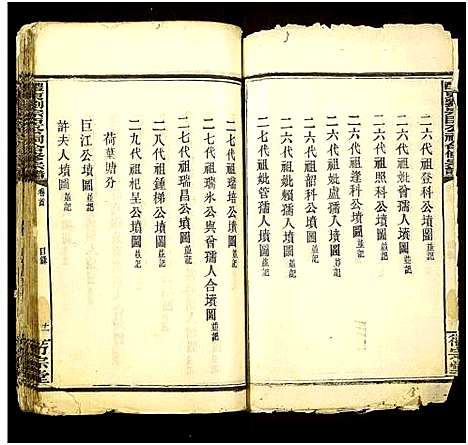 二六代祖登科公墳圖並記
二六代祖妣曾孺人墳圖並記
二六代祖照科公墳圖並記
二六代祖逢科公墳圖並記
二六代祖妣盧孺人墳圖並記
二六代祖妣賴孺人墳圖並記
二七代祖妣管孺人墳圖並記
二七代祖瑞培公墳圖並記
二七代祖瑞泳公與曾孺人合墳圖並記
二七代祖瑞昌公墳圖並記
二八代祖鍾梯公墳圖並記
二九代祖杞呈公墳圖並記
荷葉塘分
巨江公墳圖並記
許夫人墳圖並記
卷首
目錄
十一
衍宗堂